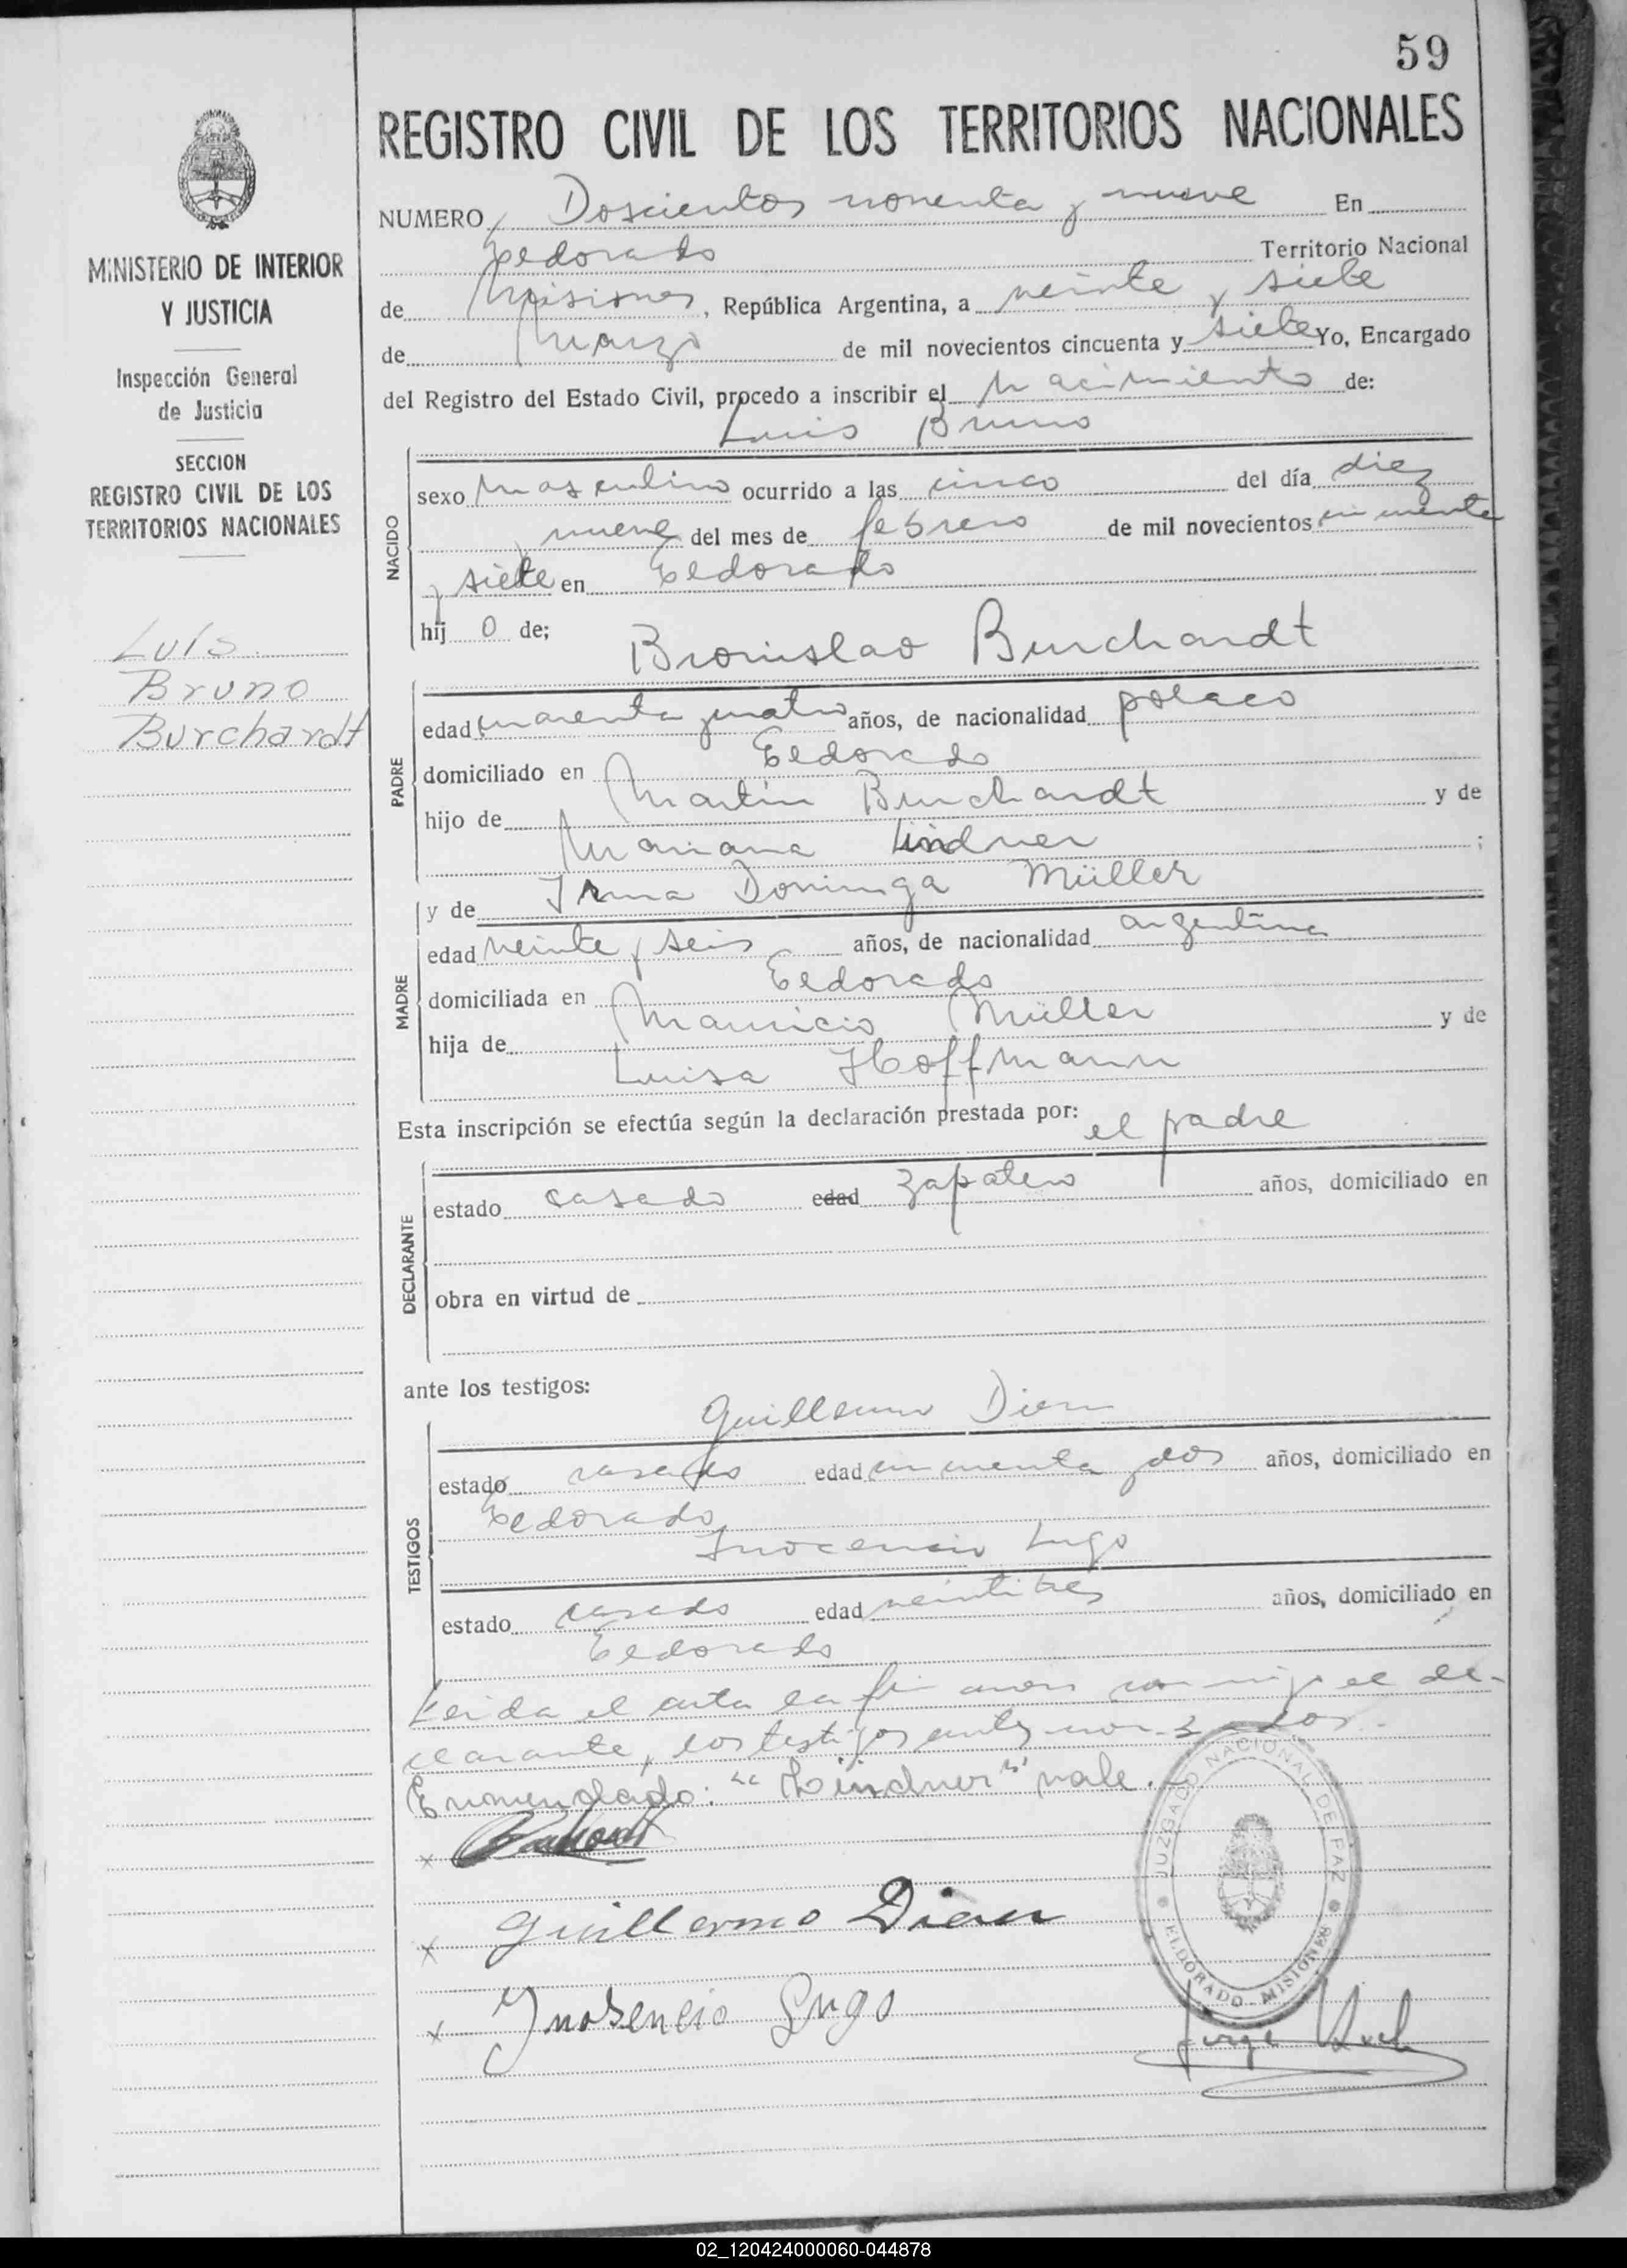 59
REGISTRO CIVIL DE LOS TERRITORIOS NACIONALES
MINISTERIO DE INTERIOR
Y JUSTICIA
Inspección General
de Justicia
SECCION
REGISTRO CIVIL DE LOS
TERRITORIOS NACIONALES
Luis
Bruno
Burchardt
NUMERO Doscientos noventa y nueve En
Eldorado Territorio Nacional
de Misiones, República Argentina, a veinte y siete
de Marzo de mil novecientos cincuenta y siete Yo, Encargado
del Registro del Estado Civil, procedo a inscribir el nacimiento de:
Luis Bruno
NACIDO
sexo masculino ocurrido a las cinco del día diez
y nueve del mes de febrero de mil novecientos cincuenta
y siete en Eldorado
hij o de; Bronislao Burchardt
PADRE
edad cuarenta y cuatro años, de nacionalidad polaco
domiciliado en Eldorado
hijo de Martín Burchardt y de
Mariana Lindner ;
y de Irma Dominga Müller
MADRE
edad veinte y seis años, de nacionalidad argentina
domiciliada en Eldorado
hija de Mauricio Müller y de
Luisa Hoffmann
Esta inscripción se efectúa según la declaración prestada por: el padre
DECLARANTE
estado casado edad zapatero años, domiciliado en
obra en virtud de
ante los testigos:
Guillermo Dien
TESTIGOS
estado casado edad cincuenta y dos años, domiciliado en
Eldorado
Inocencio Lugo
estado casado edad veintitres años, domiciliado en
Eldorado
Leida el acta la firman conmigo el de-
clarante, los testigos antes nombrados.
Enmendado: "Lindner" vale.
x
x Guillermo Dien
x Inosencio Lugo
JUZGADO NACIONAL DE PAZ
ELDORADO - MISIONES
Jorge
02_120424000060-044878